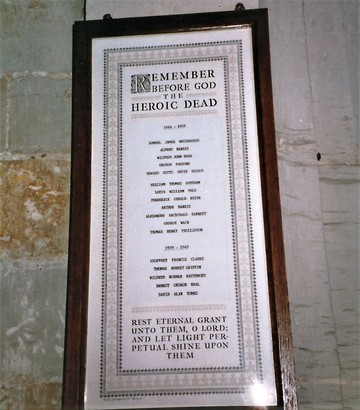 REMEMBER
BEFORE GOD
THE
HEROIC DEAD
1914 - 1918
SAMUEL JAMES
ALFRED HARRIS
WILFRED JOHN
GEORGE PARSONS
EDWARD
WILLIAM THOMAS
LOUIS WILLIAM
FREDERICK GERALD
ARTHUR
ALEXANDER ARCHIBALD BARNETT
GEORGE
THOMAS HENRY
1939 - 1945
GEOFFREY FRANCIS CLARKE
THOMAS ROBERT GRIFFIN
WILFRED NORMAN
ERNEST GEORGE NEAL
DAVID ALAN TOMBS
REST ETERNAL GRANT
UNTO THEM, O LORD:
AND LET LIGHT PER-
PETUAL SHINE UPON
THEM